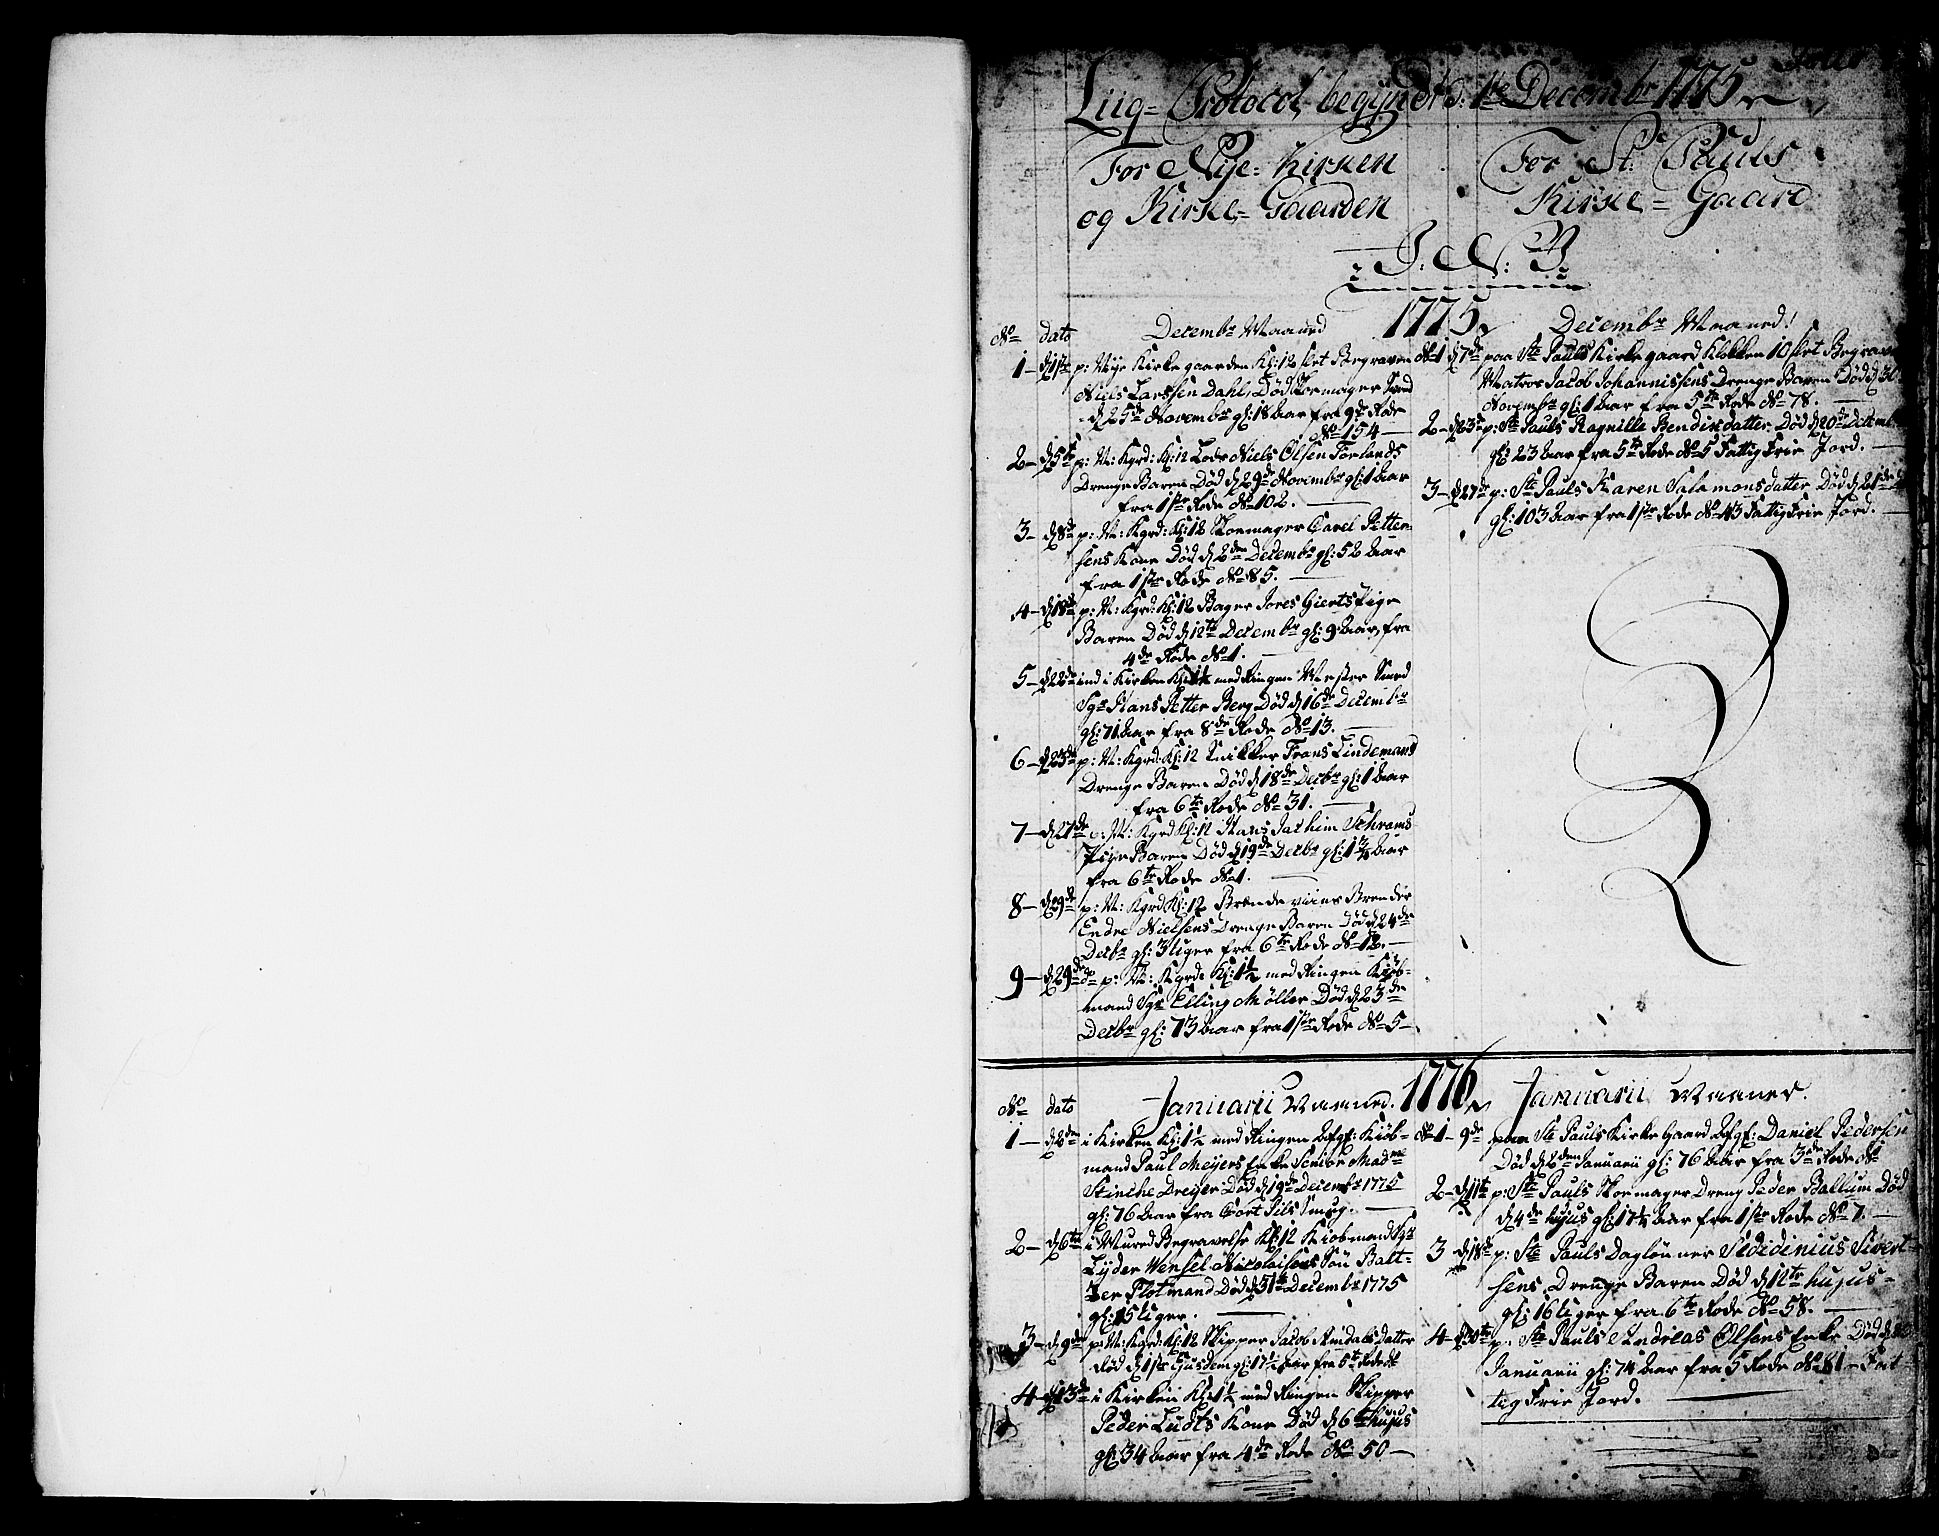 Liig=Protocol begyndt d: 1te Decembr 1775
For Nye=Kirken
og Kirke=Gaarden
For St: Pauls
Kirke=Gaard
J: N: J:
1775
No dato Decembr Maaned
1 – d 1ste p: Nye Kirke gaarden Kl: 12 slet Begraven
Niels Larssen Dahl, Død Skomager Svend
d 25de Novembr gl: 18 aar fra 9de Rode
No 154 –
2 – d 5te p: N: Kgrd: Kl: 12 Lods Niels Olsen Forlands
Drenge Baren Død d 29de Novembr gl: 1 aar
fra 1ste Rode No 102. –
3 – d 8de p: N: Kgrd: Kl: 12 Skomager Carel Petter-
sens Kone Død d 2den Decembr gl: 52 aar
fra 1ste Rode No 85. –
4 – d 18de p: N: Kgrd: Kl: 12 Bager Jores Gierts Pige
Baren Død d 12te Decembr gl: 9 aar, fra
4de Rode No 1. –
5 – d 22de ind i Kirken Kl: 1½ med Ringen Mester Smed
Sgr Hans Petter Berg Død d 16de Decembr
gl: 71 aar fra 8de Rode No 13. –
6 – d 23de p: N: Kgrd: Kl: 12 Snikker Frans Lindemans
Drenge Baren Død d 18de Decbr gl: 1 aar
fra 6te Rode No 31. –
7 – d 27de p: N: Kgrd Kl: 12 Hans Jachim Schrams
Pige Baren Død d 19de Decbr gl: 1¾ aar
fra 6te Rode No 1. –
8 – d 29de p: N: Kgrd Kl: 12 Brændeviins Brænder
Endre Nielsens Drenge Baren Død d 24de
Decbr gl: 3 Uger fra 6te Rode No 12. –
9 – d 29de do p: N: Kgrd: Kl: 1½ med Ringen Kiøb-
mand Sgr Elling Møller Død d 23de
Decbr gl: 73 aar fra 1ste Rode No 5 –
Decembr Maaned!
No 1 d 7de paa Ste Pauls Kirke gaard Klokken 10 slet Begraven
Matros Jacob Johannissens Drenge Baren Død d 30
Novembr gl: 1 aar fra 5te Rode No 78. –
2 – d 23de p: Ste Pauls Ragnille Bendixdatter Død d 20de Decemb
gl: 23 aar fra 5te Rode No 5 Fattig Frie Jord. –
3 – d 27de p: Ste Pauls Karen Salamonsdatter Død d 21de
gl: 103 aar fra 1ste Rode No 43 Fattig Frie Jord. –
1776
No dato Januarii Maaned.
1 – d 2den i Kirken Kl: 1½ med Ringen Bfgf: Kiøb-
mand Paul Meyers Enke Senior Madme
Stinche Dreyer Død d 19de Decembr 1775
gl: 76 aar fra Cort Pils Smug. –
2 – d 6te i Mured Begravelse Kl: 12 Kiøbmand Sgr
Lyder Wensel Nicolaisens Søn Balt-
zer Flotmand Død d 31te Decembr 1775
gl: 15 Uger. –
3 – d 9de p: N: Kgrd: Kl: 12 Skipper Jacob Amdals Datter
Død d 1ste Ejusdem gl: 17½ aar fra 5te Rode No
4 – d 13de i Kirken Kl: 1½ med Ringen Skipper
Peder Ludts Kone Død d 6te hujus
gl: 34 aar fra 4de Rode No 50 –
Januarii Maaned.
No 1 – 9de paa Ste Pauls Kirke Gaard Bfgf: Daniel Pedersen
Død d 2den Januarii gl: 76 aar fra 3de Rode No
2 – d 11te p: Ste Pauls Skomager Dreng Peder Ballum Død
d 4de hujus gl: 17½ aar fra 1ste Rode No 7. –
3 – d 18de p: Ste Pauls Daglønner Sididinius Sivert-
sens Drenge Baren Død d 12te hujus –
gl: 16 Uger fra 6te Rode No 58. –
4 – d 30te p: Ste Pauls Andreas Olsens Enke Død d
Januarii gl: 74 aar fra 5 Rode No 81 – Fat-
tig Frie Jord. –